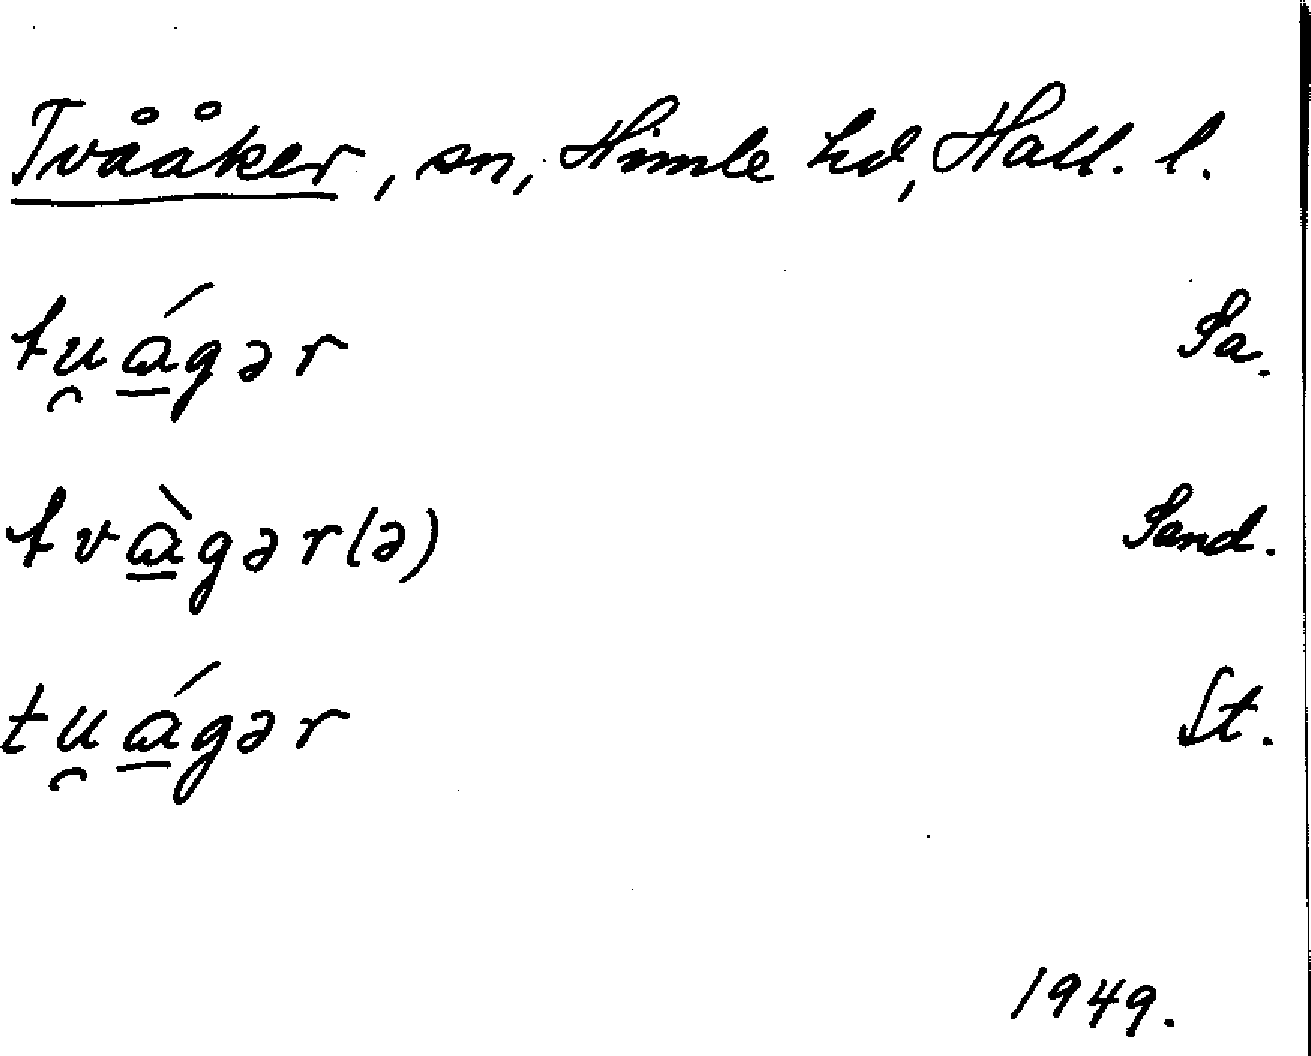 Tvååker, sn, Himle hd, Hall. l.
tu̯á̲gər Sa.
tvà̲gər(ə) Sand.
tu̯á̲gər St.
1949.